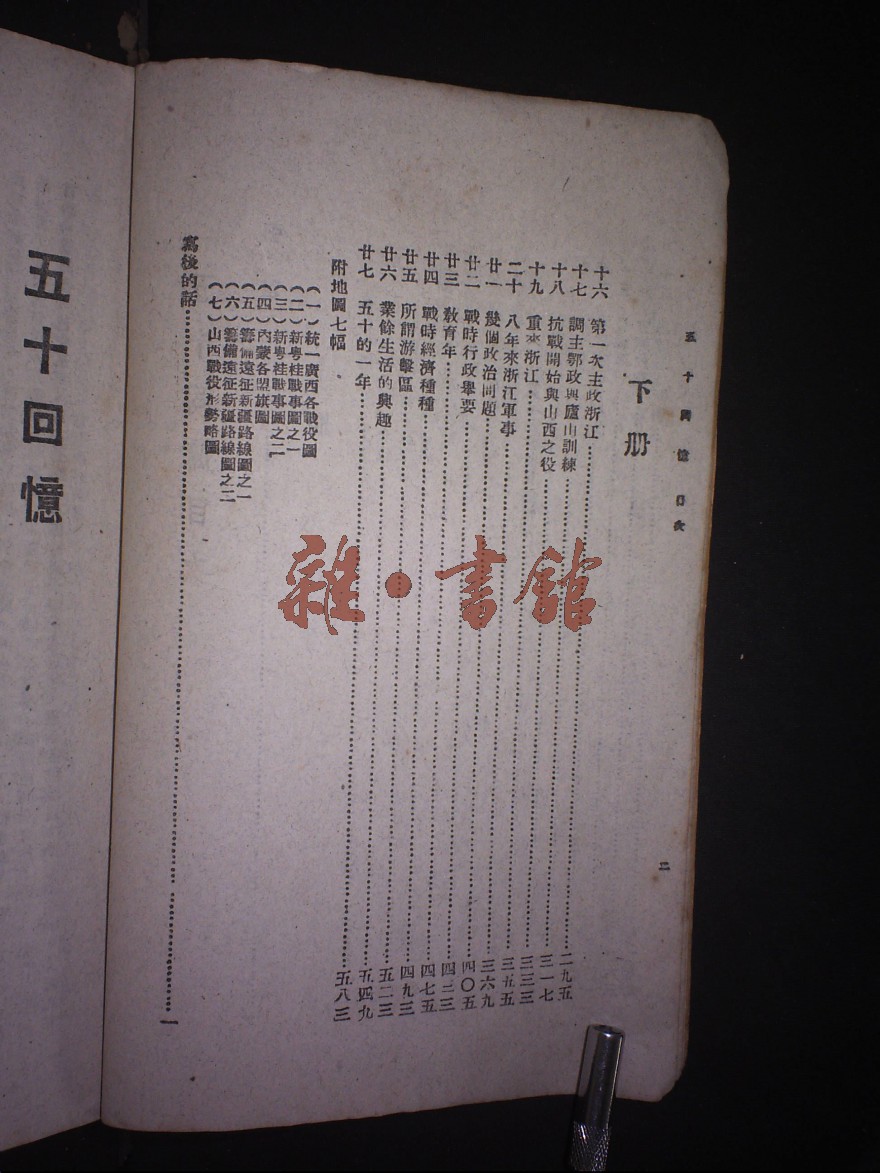 五十回憶　目次
下册
十六　第一次主政浙江……二九五
十七　調主鄂政與廬山訓練……三一七
十八　抗戰開始與山西之役……三三三
十九　重來浙江……三五五
二十　八年來浙江軍事……三六九
廿一　幾個政治問題……四〇五
廿二　戰時行政舉要……四三三
廿三　教育年……四七五
廿四　戰時經濟種種……四九三
廿五　所謂游擊區……五二三
廿六　業餘生活的興趣……五四九
廿七　五十的一年……五八三
附地圖七幅
（一）統一廣西各戰役圖
（二）新粵桂戰事圖之一
（三）新粵桂戰事圖之二
（四）內蒙各盟旗圖
（五）籌備遠征新疆路線圖之一
（六）籌備遠征新疆路線圖之二
（七）山西戰役形勢略圖
寫後的話……一
二
五十回憶
雜·書館